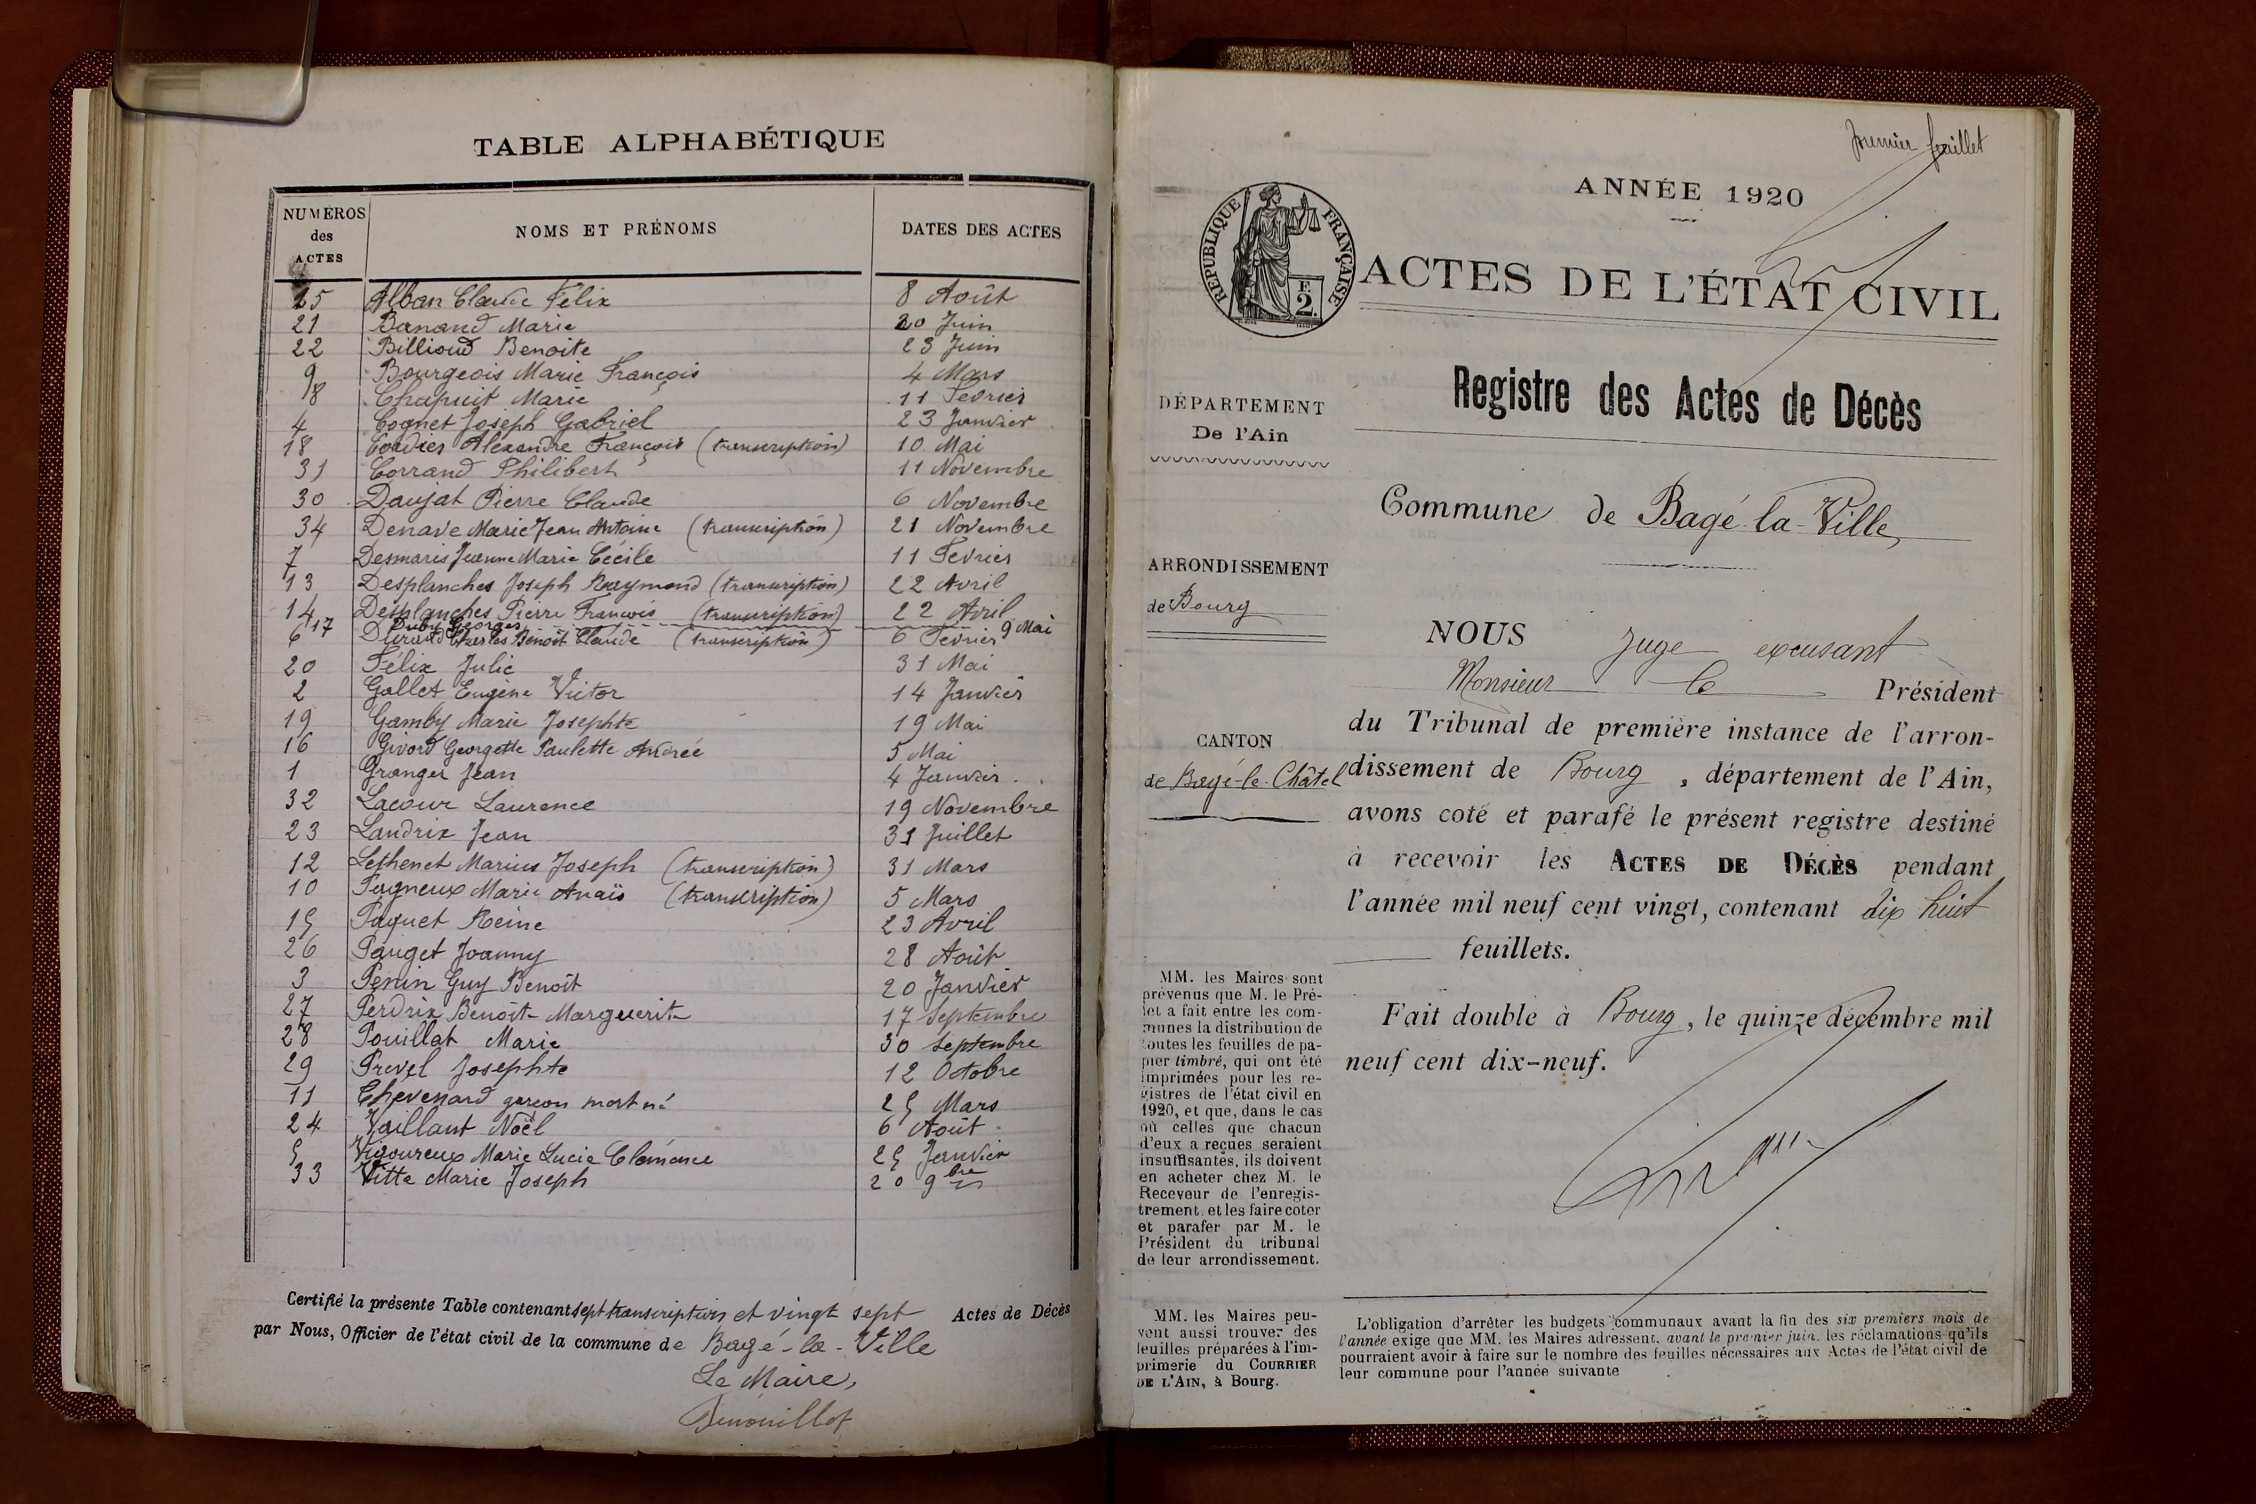 TABLE ALPHABÉTIQUE
NUMÉROS des ACTES NOMS ET PRÉNOMS DATES DES ACTES
25 Alban Claude Félix 8 Août
21 Banand Marie 20 Juin
22 Billioud Benoite 23 Juin
9 Bourgeois Marie François 4 Mars
8 Chapuit Marie 11 Fevrier
4 Cognet Joseph Gabriel 23 Janvier
18 Cordier Alexandre François (transcription) 10 Mai
31 Corrand Philibert 11 Novembre
30 Daujat Pierre Claude 6 Novembre
34 Denave Marie Jean Antoine (transcription) 21 Novembre
7 Desmaris Jeanne Marie Cécile 11 Fevrier
13 Desplanches Joseph Raymond (transcription) 22 Avril
14 Desplanches Pierre François (transcription) 22 Avril
17 Duby Georges 9 Mai
6 Durand Charles Benoît Claude (transcription) 6 Fevrier
20 Félix Julie 31 Mai
2 Gallet Eugène Victor 14 Janvier
19 Gamby Marie Josephte 19 Mai
16 Givord Georgette Paulette Andrée 5 Mai
1 Granger Jean 4 Janvier
32 Lacour Laurence 19 Novembre
23 Landrix Jean 31 Juillet
12 Lethenet Marius Joseph (transcription) 31 Mars
10 Pagneux Marie Anaïs (transcription) 5 Mars
15 Paquet Reine 23 Avril
26 Pauget Joanny 28 Août
3 Penin Guy Benoît 20 Janvier
27 Perdrix Benoît-Marguerite 17 Septembre
28 Pouillat Marie 30 Septembre
29 Prevel Josephte 12 Octobre
11 Thevenard garçon mort né 25 Mars
24 Vaillant Noël 6 Août
5 Vigoureux Marie Lucie Clémence 25 Janvier
33 Vitte Marie Joseph 20 9bre
Certifié la présente Table contenant sept transcriptions et vingt sept Actes de Décès
par Nous, Officier de l'état civil de la commune de Bagé-la-Ville
Le Maire,
premier feuillet
ANNÉE 1920
RÉPUBLIQUE FRANÇAISE
F.
2.
ACTES DE L'ÉTAT CIVIL
Registre des Actes de Décès
DÉPARTEMENT
De l'Ain
Commune de Bagé-la-Ville,
ARRONDISSEMENT
de Bourg
CANTON
de Bagé-le-Châtel
NOUS Juge excusant
Monsieur le Président
du Tribunal de première instance de l'arron-
dissement de Bourg, département de l'Ain,
avons coté et parafé le présent registre destiné
à recevoir les ACTES DE DÉCÈS pendant
l'année mil neuf cent vingt, contenant dix huit
feuillets.
Fait double à Bourg, le quinze décembre mil
neuf cent dix-neuf.
MM. les Maires sont
prévenus que M. le Pré-
fet a fait entre les com-
munes la distribution de
toutes les feuilles de pa-
pier timbré, qui ont été
imprimées pour les re-
gistres de l'état civil en
1920, et que, dans le cas
où celles que chacun
d'eux a reçues seraient
insuffisantes, ils doivent
en acheter chez M. le
Receveur de l'enregis-
trement, et les faire coter
et parafer par M. le
Président du tribunal
de leur arrondissement.
MM. les Maires peu-
vent aussi trouver des
feuilles préparées à l'im-
primerie du COURRIER
DE L'AIN, à Bourg.
L'obligation d'arrêter les budgets communaux avant la fin des six premiers mois de
l'année exige que MM. les Maires adressent, avant le premier juin, les réclamations qu'ils
pourraient avoir à faire sur le nombre des feuilles nécessaires aux Actes de l'état civil de
leur commune pour l'année suivante